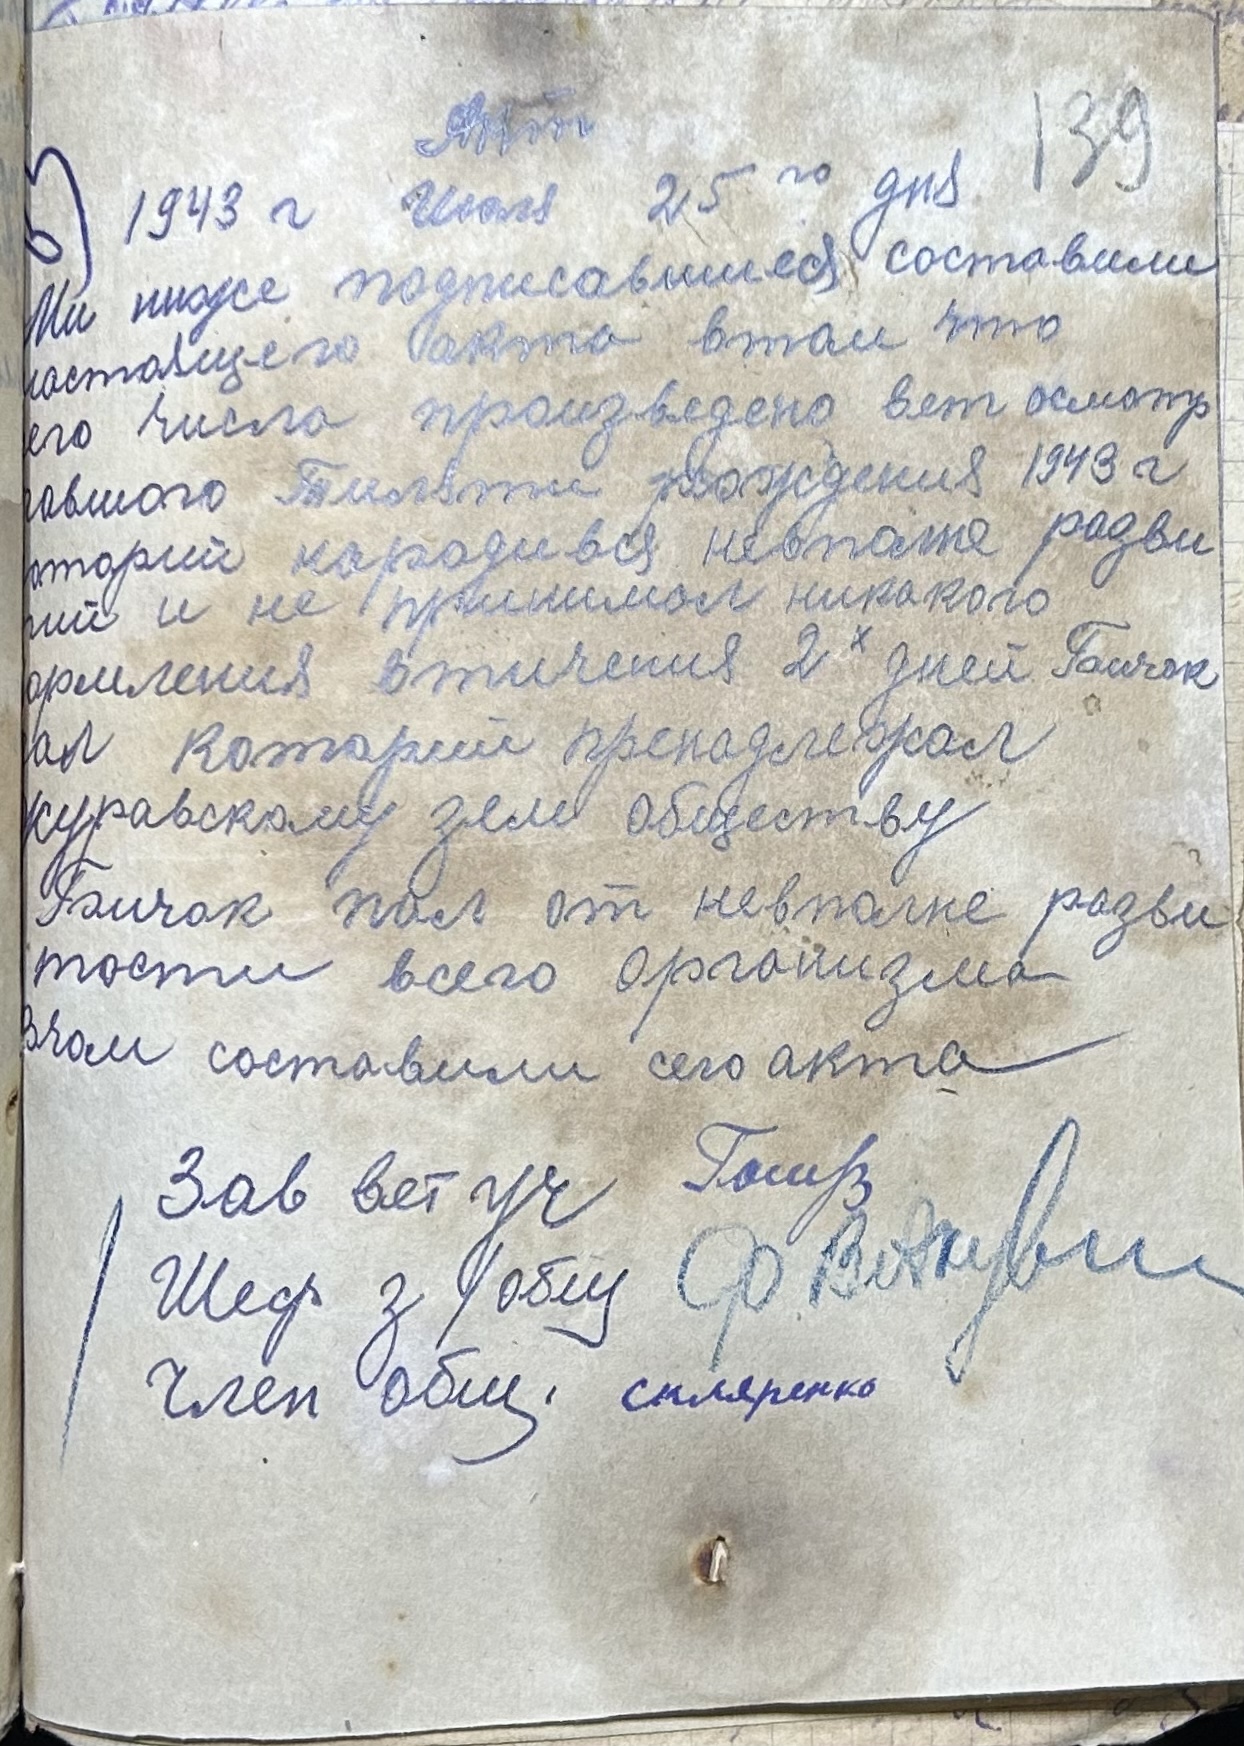 139
Акт
1943 г Июля 25го дня
Ми ниже подписавшиеся составили
настоящего акта втом что
его числа произведено вет осмотр
павшого Тиляти рождения 1943 г
оторий народився невполне разви
тий и не принимал никакого
ормления втичения 2х дней Бичок
пал Которий пренадлежал
журавскому зем обществу
Бичок пал от невполне разви
тости всего организма
Вчом составили сего акта
Зав вет уч
Шеф з/общ Ф.
Член общ. скляренко